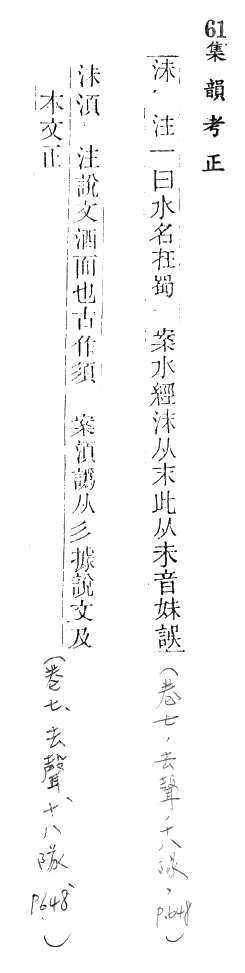 61集韻考正
沬 注一曰水名在蜀 案水經沫从末此从未音妹誤
(卷七,去聲,十八隊,P.648)
沬湏 注說文洒面也古作須 案湏譌从彡據說文及
本文正
(卷七、去聲、十八隊、P.648)